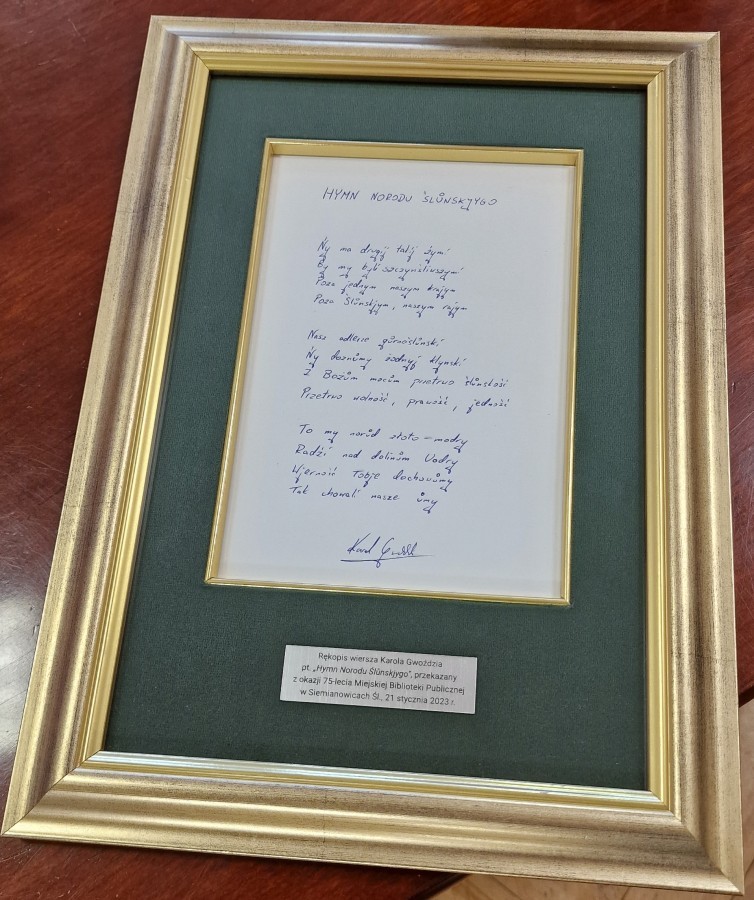 HYMN NORODU ŚLŮNSKJYGO
Ńy ma drugij takij źymi
By my byli szczynśliwszymi
Poza jednym naszym krajym
Poza Ślůnskjym, naszym rajym
Nasz adlerze gůrnoślůnski
Ńy doznůmy żodnyj klynski
Z Bożům mocům przetrwo ślůnskość
Przetrwo wolność, prawość, jedność
To my norůd złoto-modry
Radźi nad dolinům Uodry
Wjerność Tobje dochowůmy
Tak chowali nasze ůmy
Rękopis wiersza Karola Gwoździa
pt. „Hymn Norodu Ślůnskjygo", przekazany
z okazji 75-lecia Miejskiej Biblioteki Publicznej
w Siemianowicach Śl., 21 stycznia 2023 r.